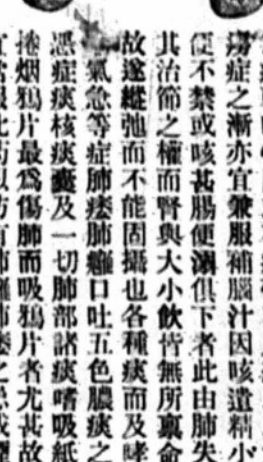 癆症之漸亦宜兼服補腦汁因咳遺精小
便不禁或咳甚腸便溺俱下者此由肺失
其治節之權而腎與大小飲皆無所稟命
故遂縱弛而不能固攝也各種痰而及哮
氣急等症肺痿肺癰口吐五色膿痰之
惡症痰核痰癧及一切肺部諸痰嗜吸紙
捲烟鴉片最為傷肺而吸鴉片者尤甚故